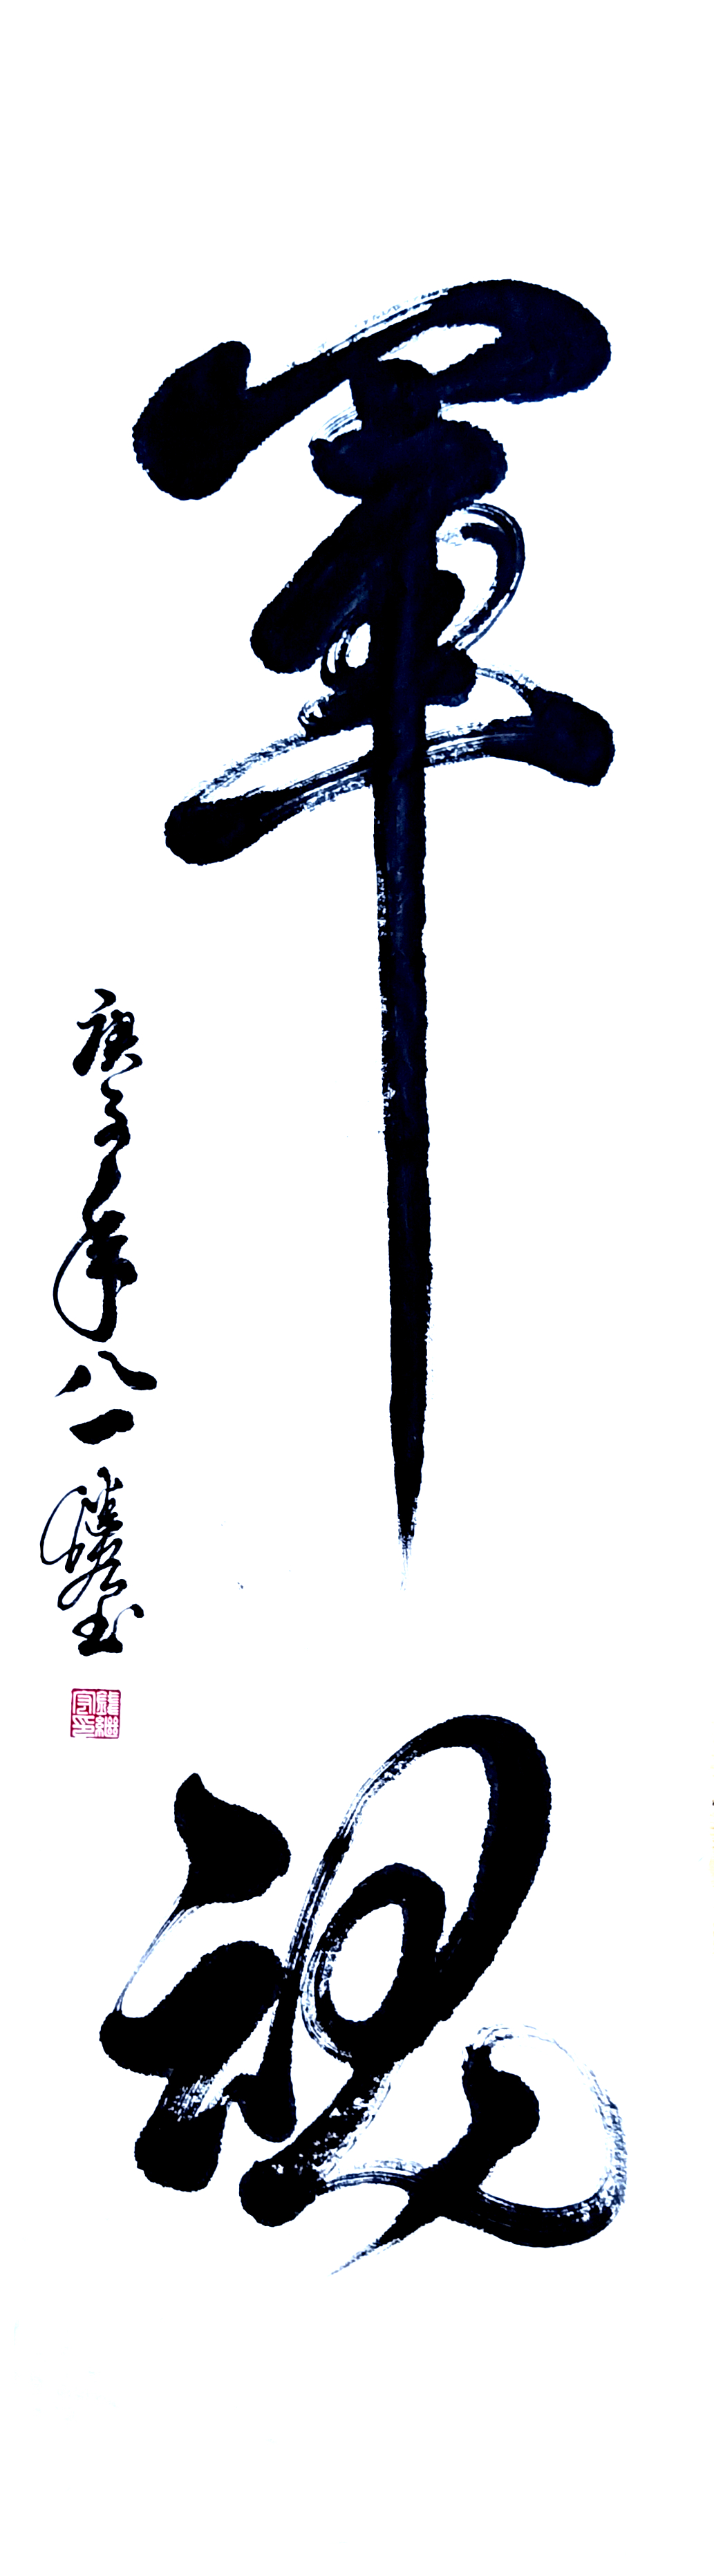 軍魂
庚子年八一